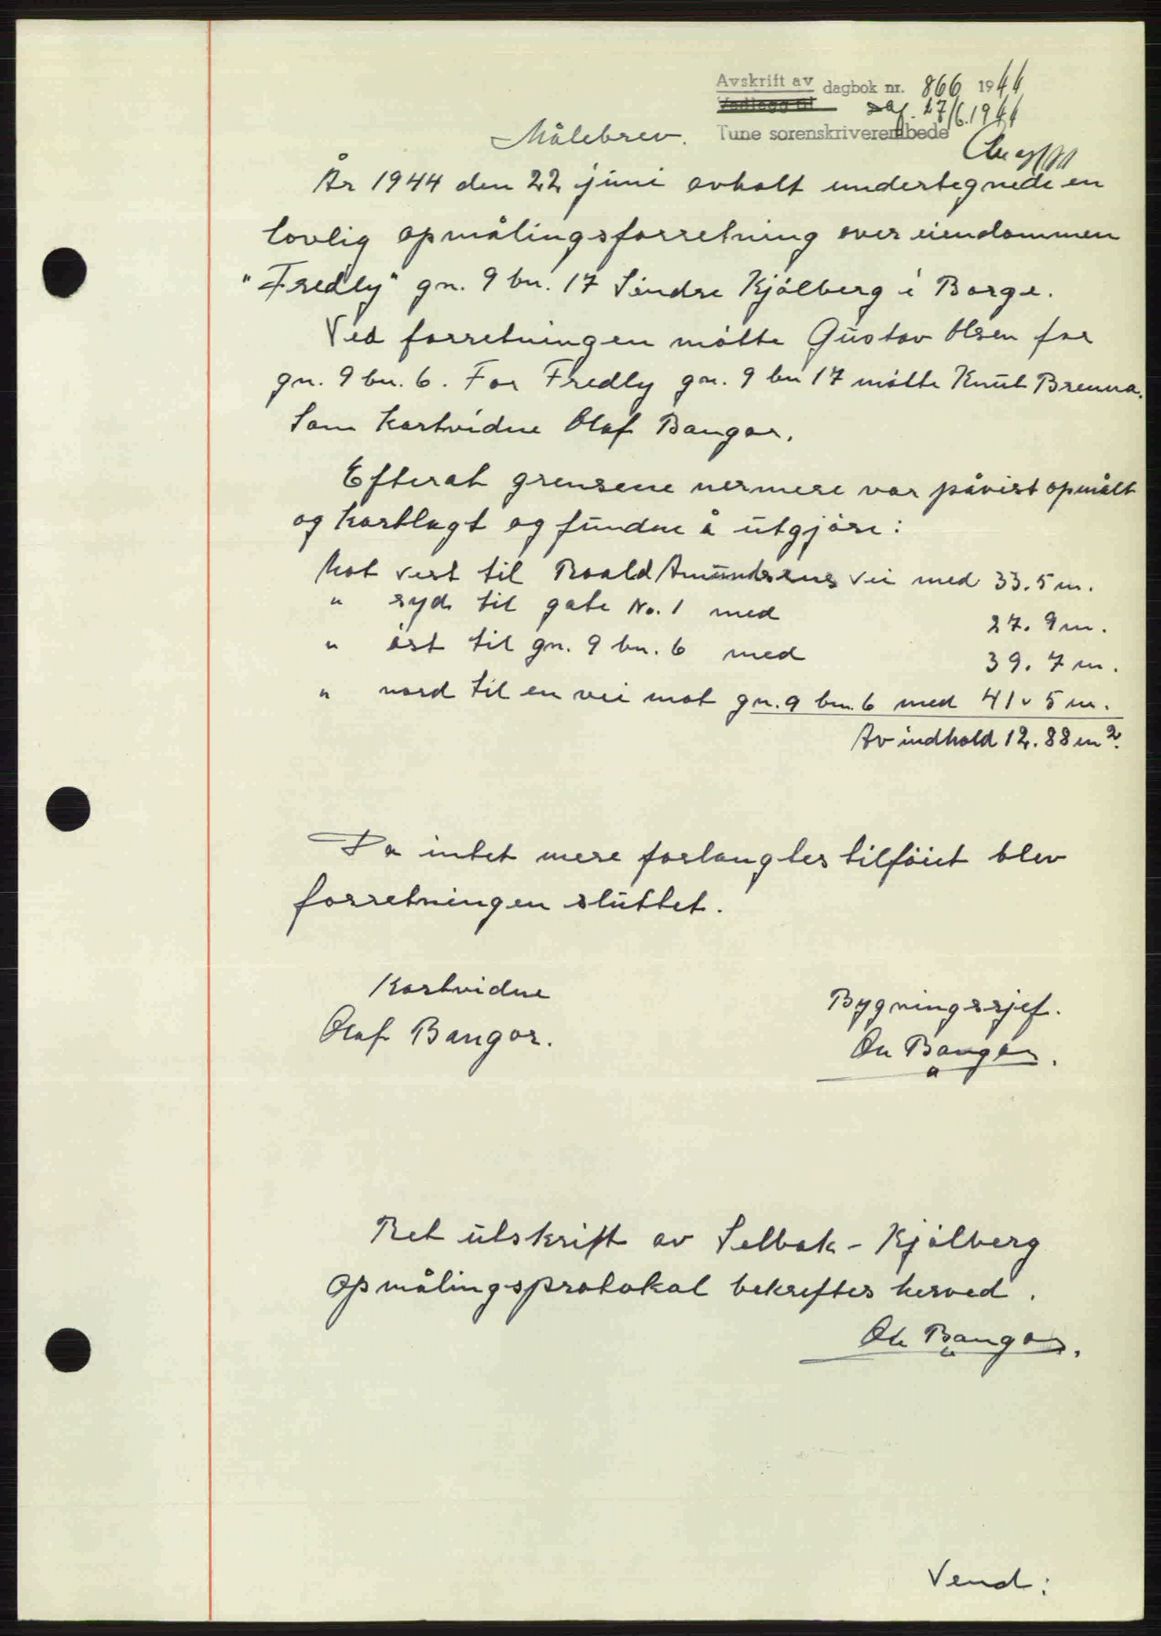 Avskrift av dagbok nr. 866 1944
Vedlegg til dag. 27/6.1944
Tune sorenskriverembede
Målebrev.
År 1944 den 22 juni avholt undertegnede en
lovlig opmålingsforretning over eiendommen
"Fredly" gn. 9 bn. 17 Söndre Kjölberg i Borge.
Ved forretningen mötte Gustav Olsen for
gn. 9 bn. 6. For Fredly gn. 9 bn 17 mötte Knut Brenna.
Som kartvidne Olaf Bangor.
Efterat grensene nermere var påvist opmålt
og kartlagt og fundne å utgjöre:
Mot vest til Roald Amundsens vei med 33.5 m.
" syd til gate No. 1 med 27.9 m.
" öst til gn. 9 bn. 6 med 39.7 m.
" nord til en vei mot gn. 9 bn. 6 med 41.5 m.
Av indhold 12.88 m².
Da intet mere forlangtes tilföiet blev
forretningen sluttet.
Kartvidne
Olaf Bangor.
Bygningssjef.
Bangor.
Ret utskrift av Selbak - Kjölberg
opmålingsprotokal bekreftes herved.
Bangor.
Vend: